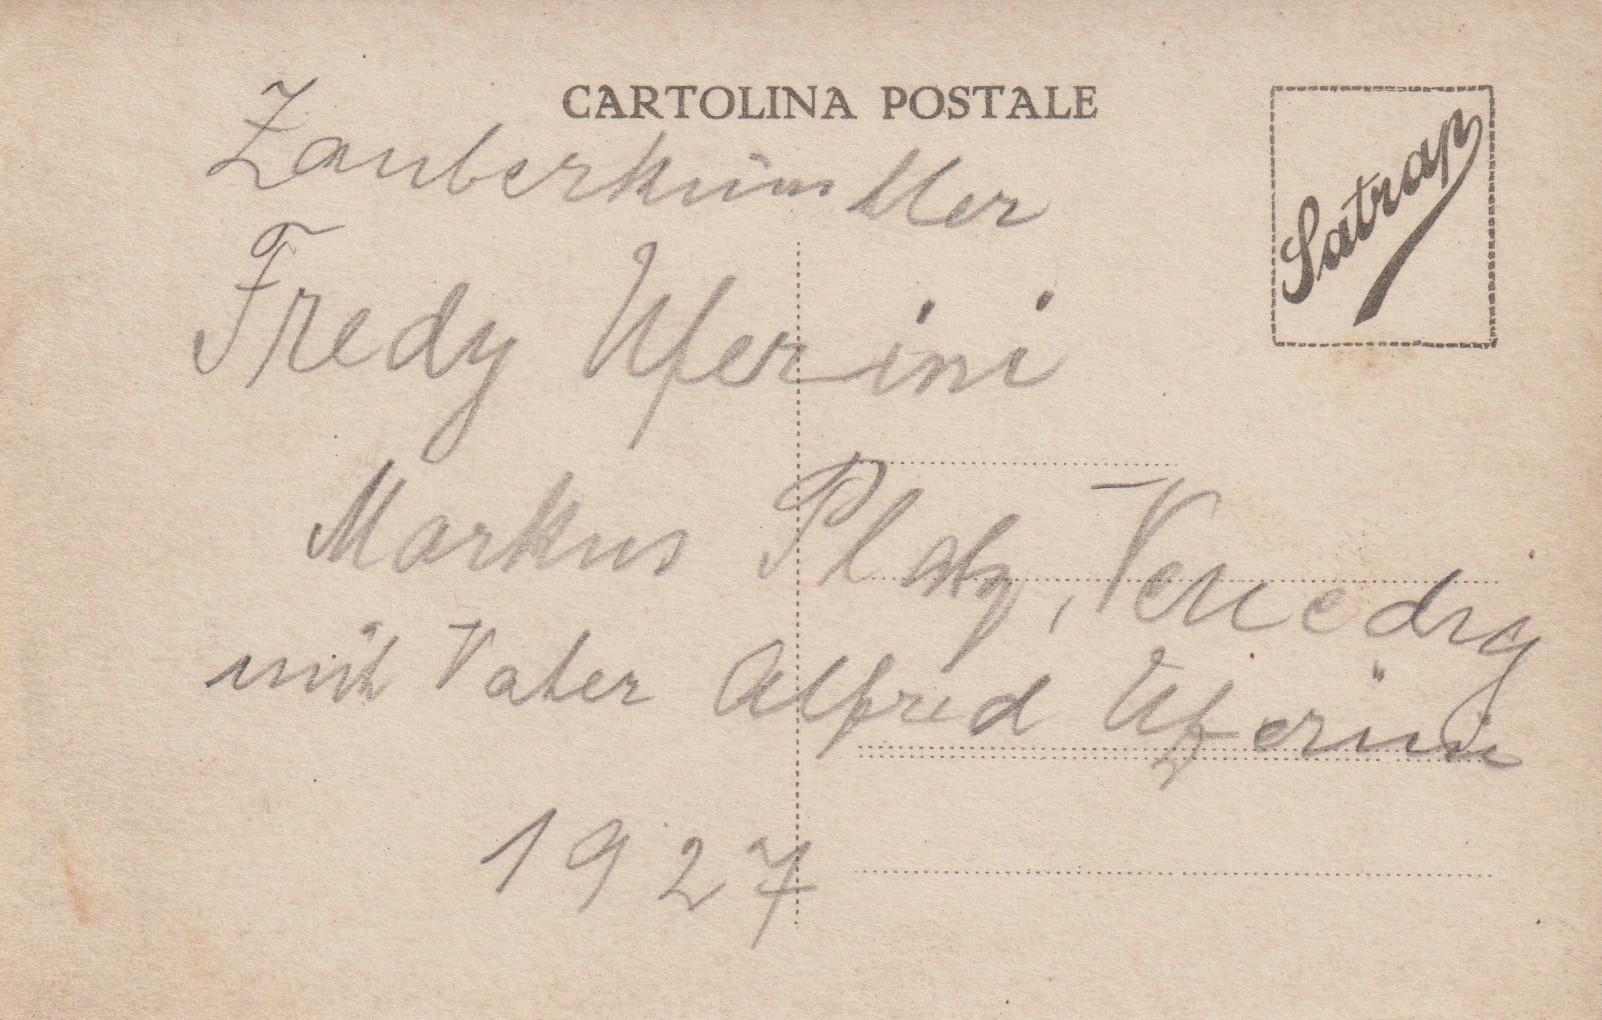 CARTOLINA POSTALE
Satrap
Zauberkünstler
Fredy Uferini
Markus Platz, Venedig
mit Vater Alfred Uferini
1927